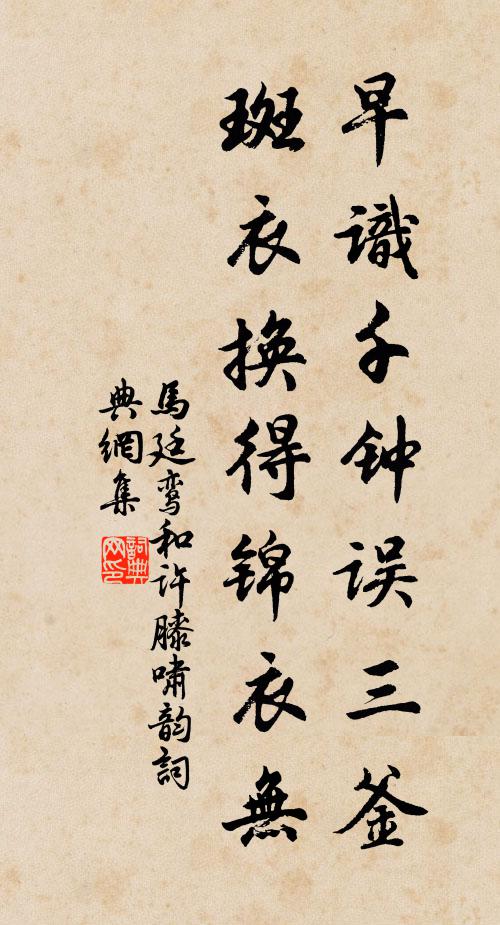 早識千钟误三釜
斑衣换得锦衣無
馬廷鸾和许滕嘯韵詞
典網集
詞典网印